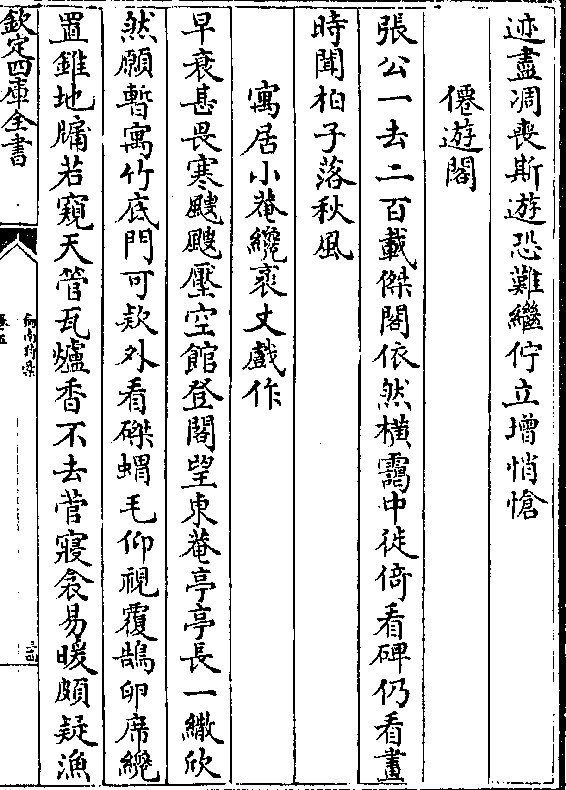 迹盡凋喪斯遊恐難繼佇立增悄愴
僊遊閣
張公一去二百載傑閣依然橫靄中徙倚看碑仍看畫
時聞柏子落秋風
寓居小菴纔袤丈戲作
早衰甚畏寒颼颼壓空館登閣望東菴亭亭長一繖欣
然願暫寓竹底門可款外看磔蝟毛仰視覆鵠卵席纔
置錐地牖若窺天管瓦爐香不去菅寢衾易暖頗疑漁
欽定四庫全書